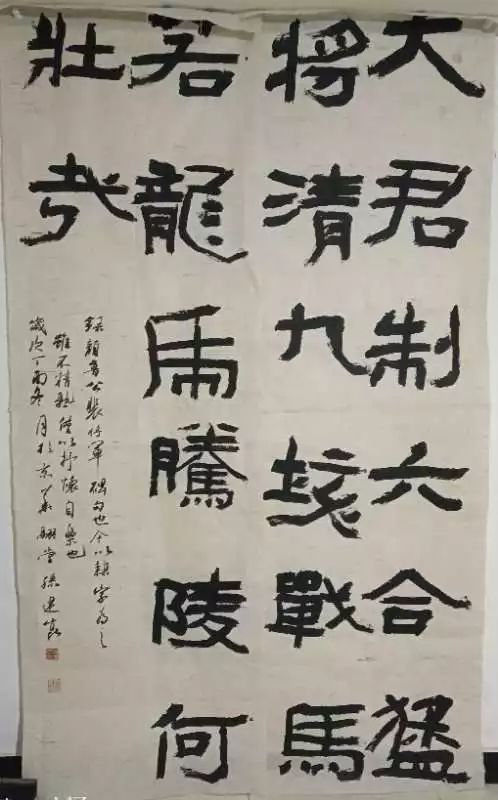 大君制六合猛
将清九垓戰馬
若龍虎騰陵何
壯哉
録顔魯公裴将軍碑句也今以隸字為之
雖不精熟僅以抒懷自樂也
歲次丁酉冬月於京華